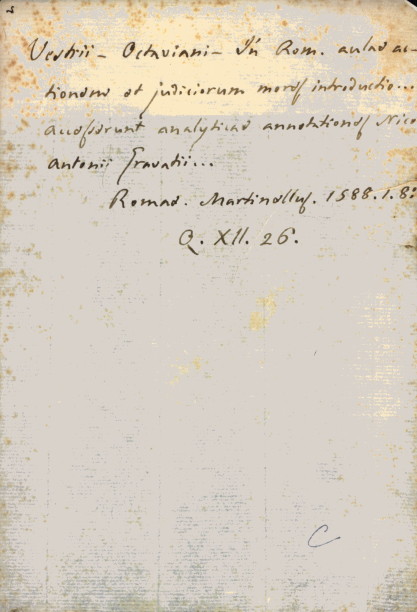 Vestrii - Octaviani - In Rom. aulae ac-
tionem et judiciorum mores introductio...
accesserunt analyticae annotationes Nico
antonii Gravatii...
Romae. Martinellus. 1588. 1. 8:
Q. XII. 26.
C